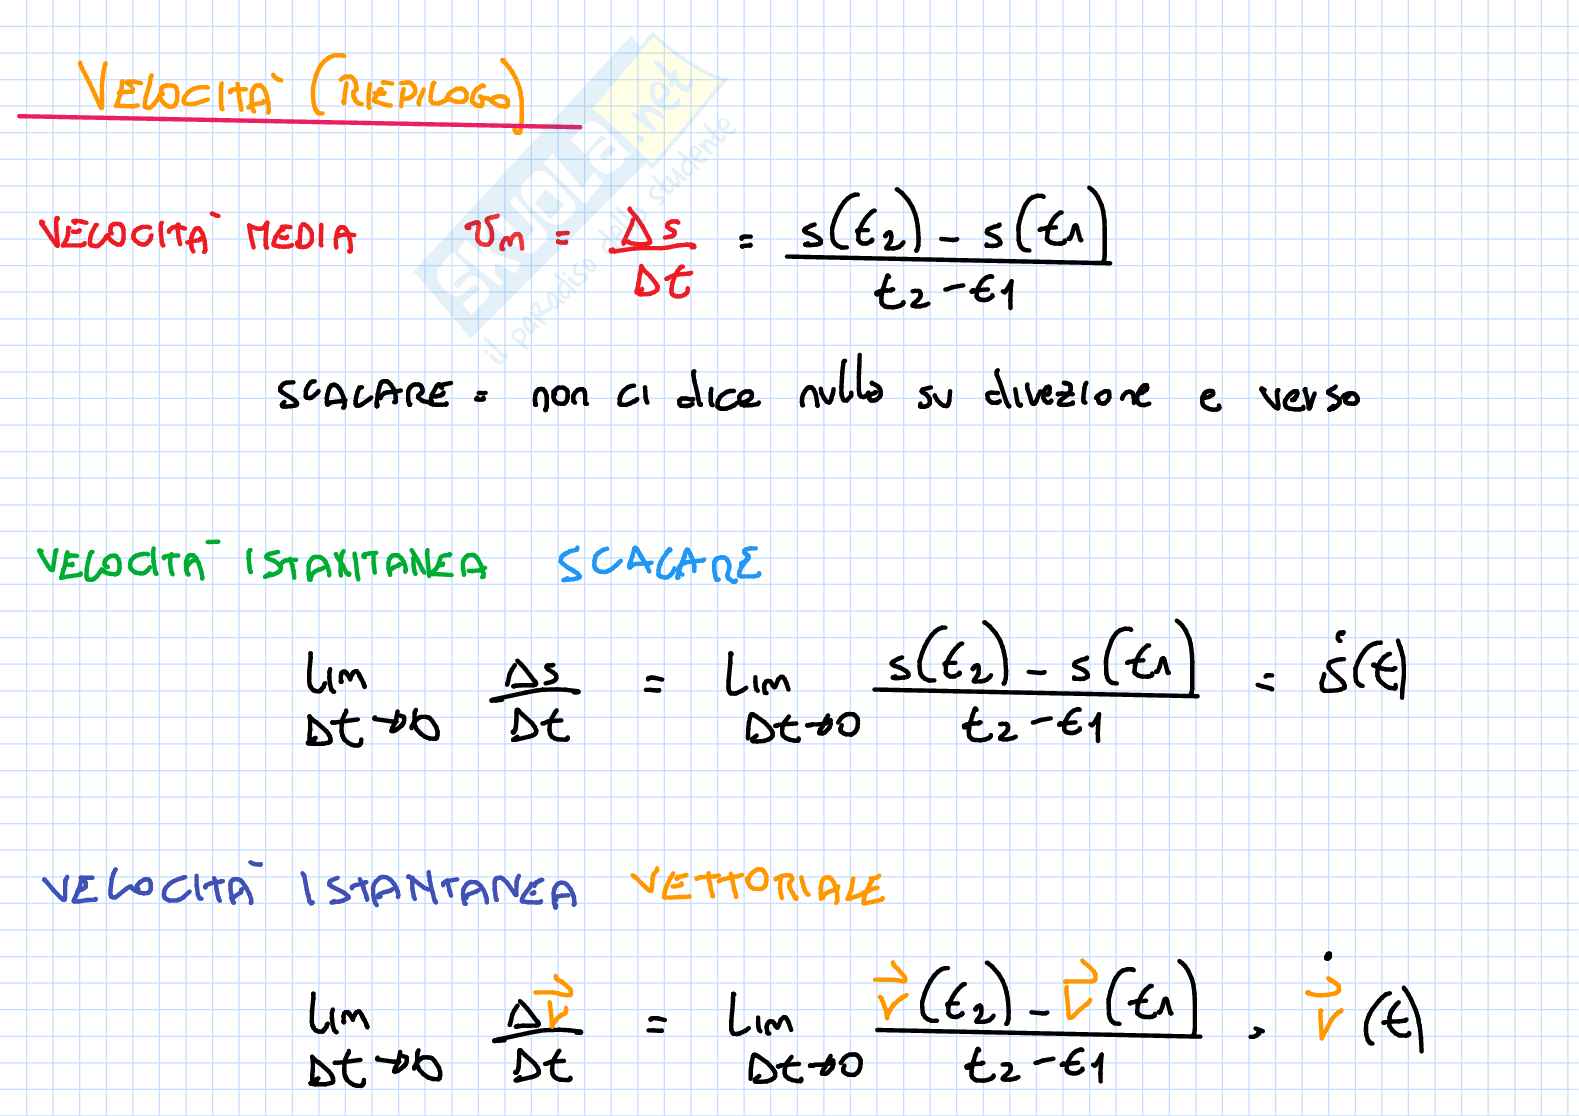 VELOCITÀ (RIEPILOGO)
skuola.net
il paradiso dello studente
VELOCITÀ MEDIA vm = Δs/Δt = s(t2) - s(t1) / t2 - t1
SCALARE = non ci dice nulla su direzione e verso
VELOCITÀ ISTANTANEA SCALARE
Lim Δt→0 Δs/Δt = Lim Δt→0 s(t2) - s(t1) / t2 - t1 = ṡ(t)
VELOCITÀ ISTANTANEA VETTORIALE
Lim Δt→0 Δr⃗/Δt = Lim Δt→0 r⃗(t2) - r⃗(t1) / t2 - t1 = ṙ⃗(t)